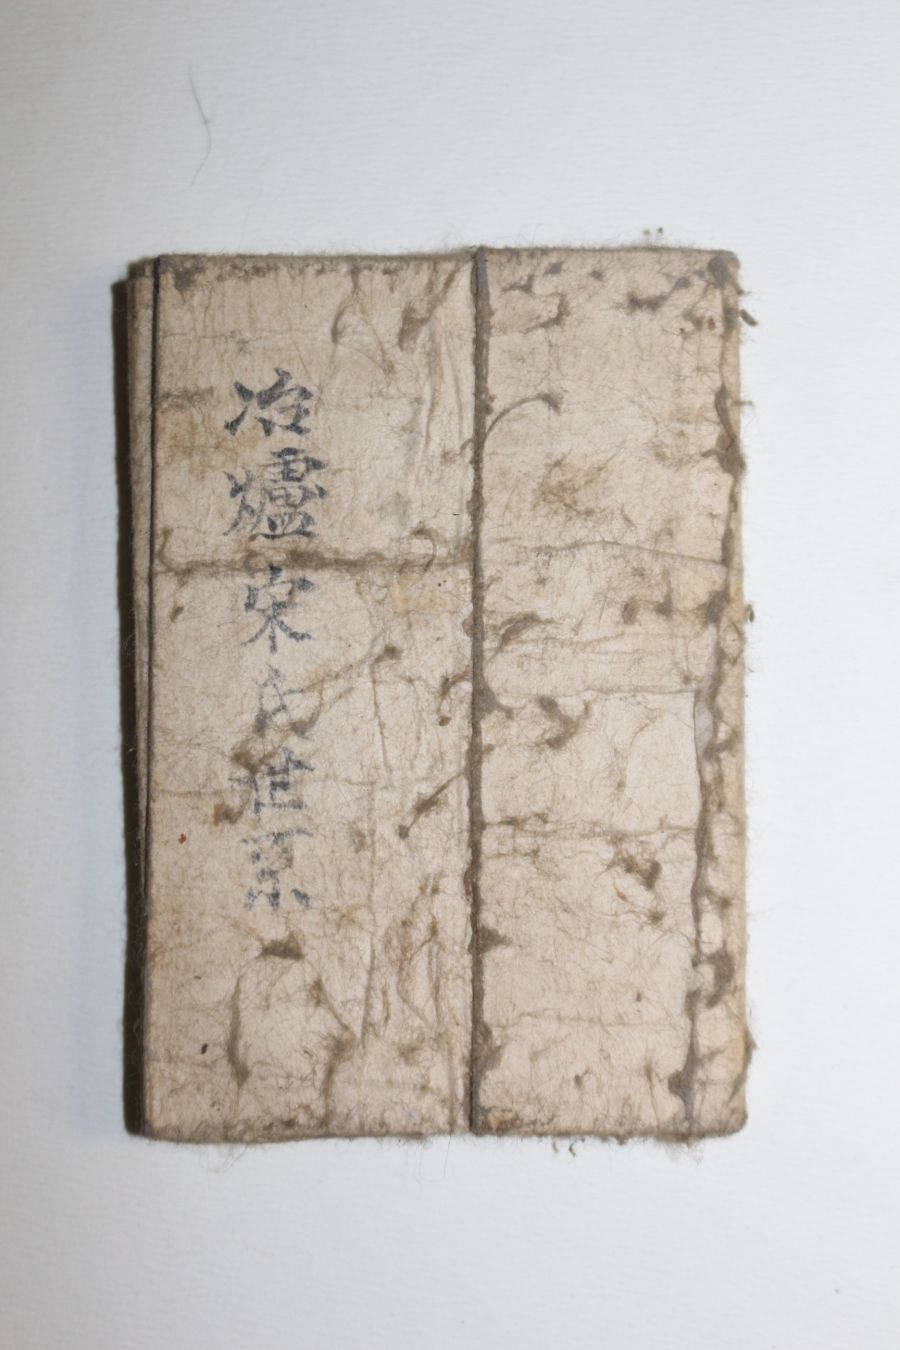 冶爐宋氏世系